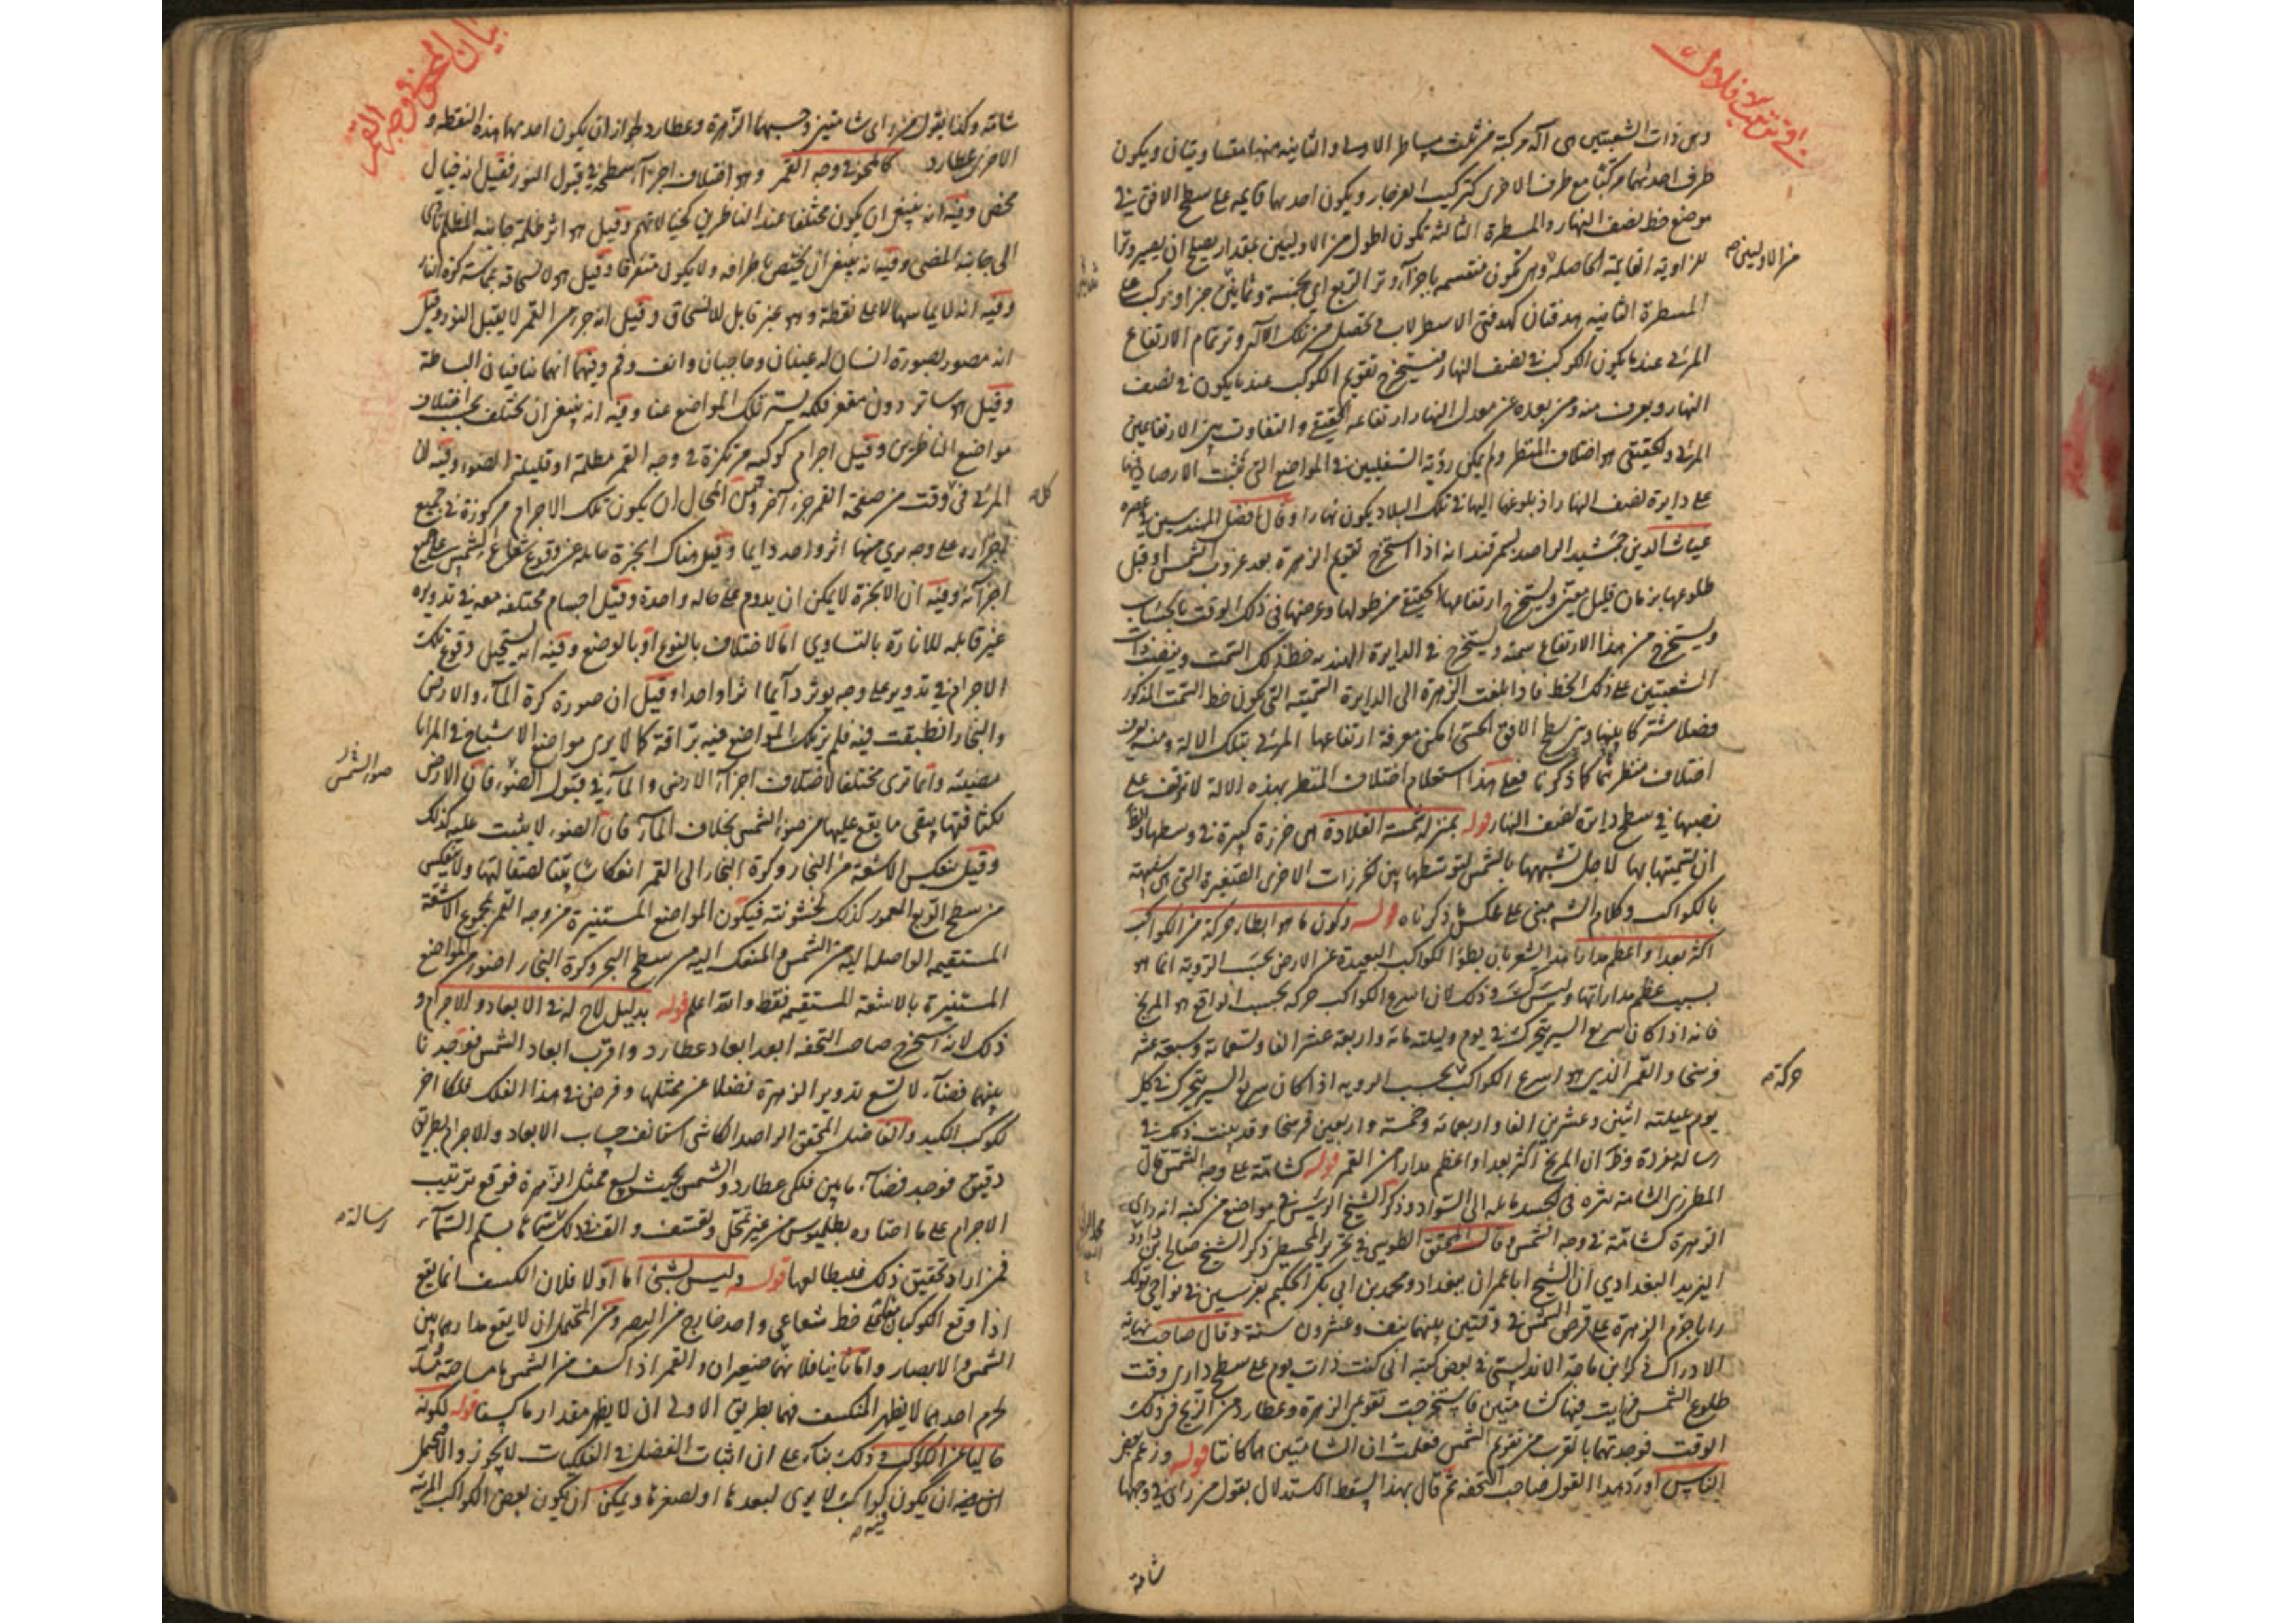 وهى ذات الشعبتين اى آلة مركبة من ثلث مساطر الاولى والثانية منها متساويتان ويكون
طرف احدىهما مركبا مع طرف الاخرى كتركيب الفرجار ويكون احدىهما قايمة على سطح الافق فى
موضع خط نصف النهار والمسطرة الثالثة تكون اطول من الاوليين بمقدار يصلح ان يصير وترا
من الاوليين
للزاوية القايمة الحاصلة وهى تكون منقسمة باجزاء وتر الربع اى بخمسة وثمانين جزءا ويركب على
المسطرة الثانية هدفتان كهدفتى الاسطرلاب فيحصل من تلك الآلة وتر تمام الارتفاع
المرئى عند ما يكون الكوكب فى نصف النهار فيستخرج تقويم الكوكب عند ما يكون فى نصف
النهار ويعرف منه ومن بعده عن معدل النهار ارتفاعه الحقيقى والتفاوت بين الارتفاعين
المرئى والحقيقى هو اختلاف المنظر ولم يمكن رؤية السفليين فى المواضع التى تمت الارصاد فيها
على دايرة نصف النهار اذ بلوغهما اليها فى تلك البلاد يكون نهارا وقال افضل المهندسين فى عصره
غياث الدين جمشيد الراصد بسمرقند انه اذا استخرج تقويم الزهرة بعد غروب الشمس او قبل
طلوعها بزمان قليل معين ويستخرج ارتفاعها الحقيقى من طولها وعرضها فى ذلك الوقت بالحساب
ويستخرج من هذا الارتفاع سمته ويستخرج فى الدايرة الهندية خط ذلك السمت وينصب ذات
الشعبتين على ذلك الخط فاذا بلغت الزهرة الى الدايرة السمتية التى يكون خط السمت المذكور
فصلا مشتركا بينها وبين سطح الافق الحسى امكن معرفة ارتفاعها المرئى بتلك الالة ومنه يعرف
اختلاف منظرهما كما ذكرنا فعلى هذا استعلام اختلاف المنظر بهذه الالة لا يتوقف على
نصبها فى سطح دايرة نصف النهار قوله بمنزلة شمسة القلادة اى خرزة كبيرة فى وسطها والظاهر
ان تسميتها بها لاجل تشبيهها بالشمس لتوسطها بين الخرزات الاخرى الصغيرة التى هى شبيهة
بالكواكب وكلام الشه مبنى على عكس ما ذكرناه قوله وكون ما هو ابطأ حركة من الكواكب
اكثر بعدا واعظم مدارا هذا يشعر بان بطؤ الكواكب البعيدة عن الارض بحسب الرؤية انما هو
بسبب عظم مداراتها وليس كك وذلك لان اسرع الكواكب حركة بحسب الواقع هو المريخ
فانه اذا كان سريع السير يتحرك فى يوم وليلته مائة واربعة عشر الفا وتسعمائة وسبعة عشر
فرسخا والقمر الذى هو اسرع الكواكب بحسب الروية اذا كان سريع السير يتحرك فى كل
حركة
يوم بليلته اثنين وعشرين الفا واربعمائة وخمسة واربعين فرسخا وقد بينت ذلك فى
رسالة مفردة وظ ان المريخ اكثر بعدا واعظم مدارا من القمر قوله كشامة على وجه الشمس قال
المطرزى الشامة بثرة فى الجسد مايلة الى السواد وذكر الشيخ الرئيس فى مواضع من كتبه انه راى
الزهرة كشامة فى وجه الشمس وقال المحقق الطوسى فى تحرير المجسطى ذكر الشيخ صالح ابن
الزيد البغدادى ان الشيخ ابا عمران ببغداد ومحمد بن ابى بكر الحكيم بفرسين فى نواحى تولك
رايا جرم الزهرة على قرص الشمس فى وقتين بينهما نيف وعشرون سنة وقال صاحب نهاية
الادراك ذكر ابن ماجة الاندلسى فى بعض كتبه انى كنت ذات يوم على سطح دارى وقت
طلوع الشمس فرايت فيها كشامتين فاستخرجت تقويمى الزهرة وعطارد من الزيج فى ذلك
الوقت فوجدتهما بالقرب من تقويم الشمس فعلمت ان الشامتين هما كانتا قوله وزعم بعض
الناس اورد هذا القول صاحب التحفة ثم قال بهذا يسقط الاستدلال بقول من راى فى وجهها
شامة
بيان المحو فى وجه القمر
شامة وكذا بقول من راى شامتين وحسبهما الزهرة وعطارد لجواز ان يكون احدىهما هذه النقطة و
الاخرى عطارد كالمحو فى وجه القمر وهو اختلاف اجزاء سطحه فى قبول النور فقيل انه خيال
محض وفيه انه ينبغى ان يكون مختلفا عند الناظرين كخيالاتهم وقيل هو اثر ظلمة جانبه المظلم تادى
الى جانبه المضئ وفيه انه ينبغى ان يختص باطرافه ولا يكون متفرقا وقيل هو لانسحاقه بمماسة كرة النار
وفيه انه لا يماسها الا على نقطة وهو غير قابل للانسحاق وقيل انه جزء من القمر لا يقبل النور وقيل
انه مصور بصورة انسان له عينان وحاجبان وانف وفم وفيهما انهما ينافيان البساطة
وقيل هو ساتر دون مقعر فلكه يستر تلك المواضع عنا وفيه انه ينبغى ان يختلف بحسب اختلاف
مواضع الناظرين وقيل اجرام كوكبية مرتكزة فى وجه القمر مظلمة او قليلة الضوء وفيه ان
المرئى فى وقت من صفحة القمر جزء آخر ومن المحال ان يكون تلك الاجرام مركوزة فى جميع
اجزاءه على وجه يرى منها اثر واحد دايما وقيل هناك ابخرة مايلة عن وقوع شعاع الشمس على جميع
اجزائه وفيه ان الابخرة لا يمكن ان يدوم على حالة واحدة وقيل اجسام مختلفة معه فى تدويره
غير قابلة للانارة بالتساوى اما لاختلاف بالنوع او بالوضع وفيه انه يستحيل وقوع تلك
الاجرام فى تدويره على وجه يوثر دايما اثرا واحدا وقيل ان صورة كرة الماء والارض
والبخار انطبقت فيه فلم ير تلك المواضع فيه براقة كما لا يرى مواضع الاشباح فى المرايا
مضيئة وانما ترى مختلفا لاختلاف اجزاء الارض والماء فى قبول الضوء فان الارض
ضوء الشمس
لكثافتها يبقى ما يقع عليها من ضوء الشمس بخلاف الماء فان الضوء لا يثبت عليه كذلك
وقيل ينعكس الاشعة من البخار وكرة البخار الى القمر انعكاسا بينا لصقالتها ولا ينعكس
من سطح الربع المعمور كذلك لخشونته فيكون المواضع المستنيرة من وجه القمر بمجموع الاشعة
المستقيمة الواصلة اليه من الشمس والمنعكسة اليه من سطح البحر وكرة البخار اضوء من المواضع
المستنيرة بالاشعة المستقيمة فقط والله اعلم قوله بدليل لاح له فى الابعاد والاجرام و
ذلك لانه استخرج صاحب التحفة ابعد ابعاد عطارد واقرب ابعاد الشمس فوجد ما
بينهما فضاء لا تسع تدوير الزهرة فضلا عن ممثلها وفرض فى هذا الفلك فلكا اخر
لكوكب الكيد والفاضل المحقق الراصد الكاشى استانف حساب الابعاد والاجرام بطريق
دقيق فوجد فضاء ما بين فلكى عطارد والشمس بحيث يسع ممثل الزهرة فوقع ترتيب
الاجرام على ما اختاره بطليموس من غير تمحل وتعسف والف فى ذلك كتابا سماها بسلم السماء
رسالة
فمن اراد تحقيق ذلك فليطالعها قوله وليس بشئ اما اولا فلان الكسف انما يقع
اذا وقع الكوكبان على خط شعاعى واحد خارج من البصر ومن المحتمل ان لا يقع مدارهما بين
الشمس والابصار واما ثانيا فلانهما صغيران والقمر اذا كسف من الشمس ما مساحته مساوية
لجرم احدهما لا يظهر المنكسف فيهما بطريق الاولى ان لا يظهر مقدار ما كسفا قوله لكونه
خاليا عن الكوكب وذلك بناء على ان اثبات الفضل فى الفلكيات لا يجوز والا فيحتمل
ان يكون كواكب لا يرى لبعدها او لصغرها ويمكن ان يكون بعض الكواكب المرئية
فيه